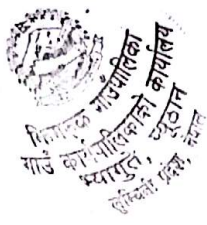 झिमरुक गाउँपालिका
गाउँ कार्यपालिकाको कार्यालय
म्यागुत, प्यूठान
लुम्बिनी प्रदेश, नेपाल